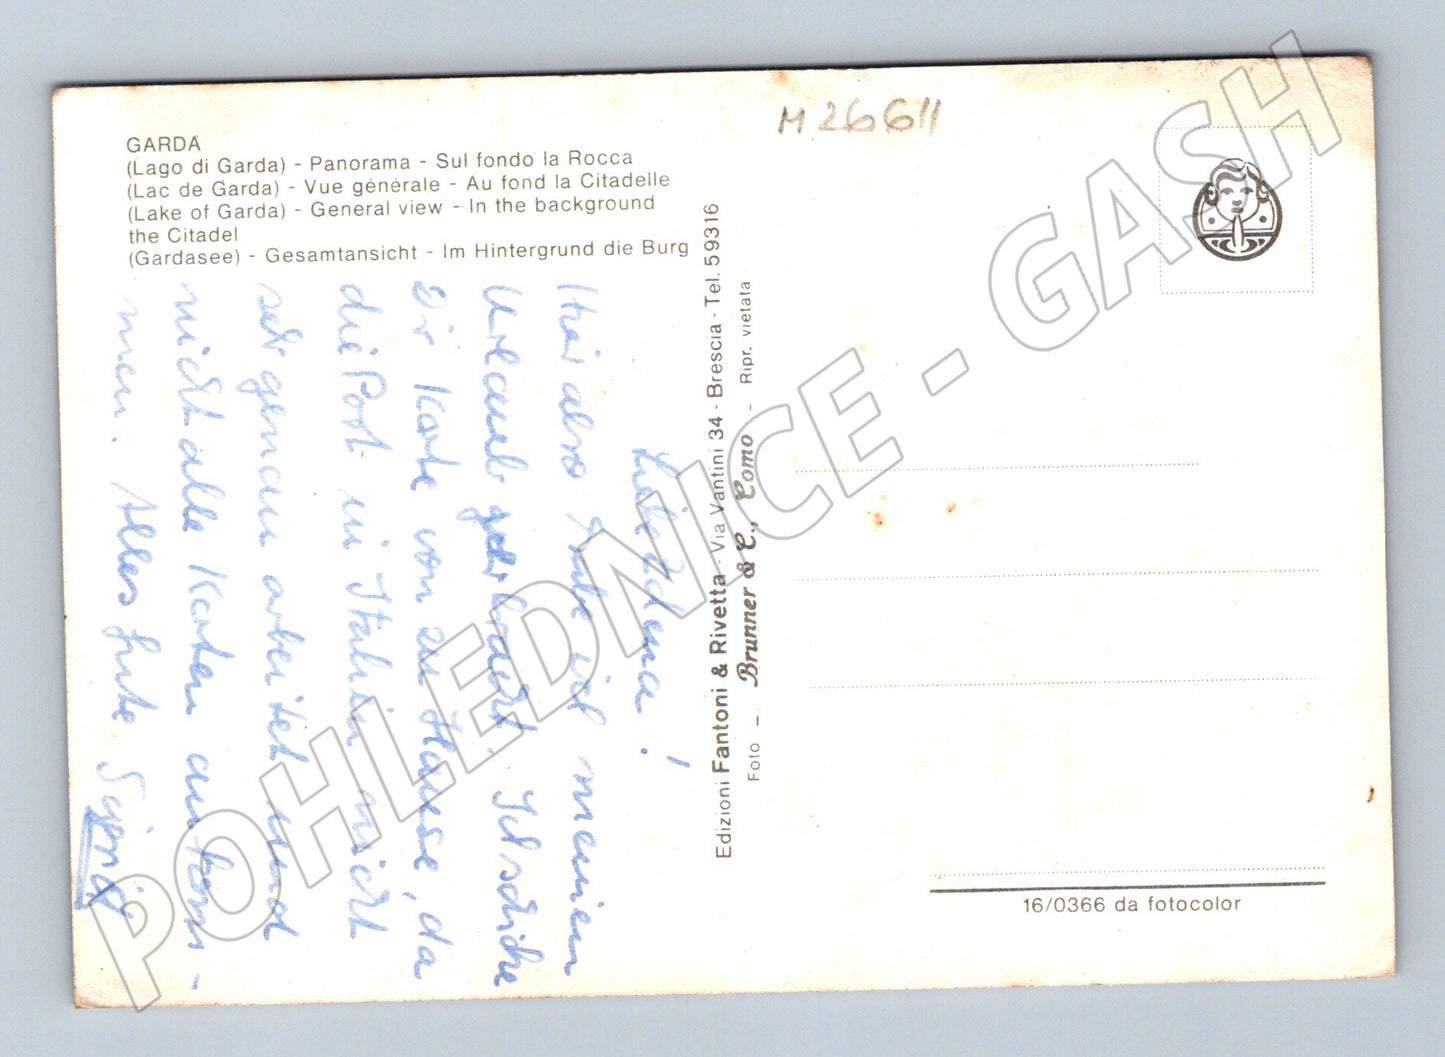 M 26611
GARDA
(Lago di Garda) - Panorama - Sul fondo la Rocca
(Lac de Garda) - Vue générale - Au fond la Citadelle
(Lake of Garda) - General view - In the background
the Citadel
(Gardasee) - Gesamtansicht - Im Hintergrund die Burg
Liebe Zdena!
also habe ich meinen
Urlaub gebracht. Ich schicke
Dir Karte von zu Hause, da
die Post in Italien nicht
sehr genau arbeitet und
nicht alle Karten ankom-
men. Alles Gute
Edizioni Fantoni & Rivetta - Via Vantini 34 - Brescia - Tel. 59316
Foto - Brunner & C., Como - Ripr. vietata
16/0366 da fotocolor
POHLEDNICE - GASH